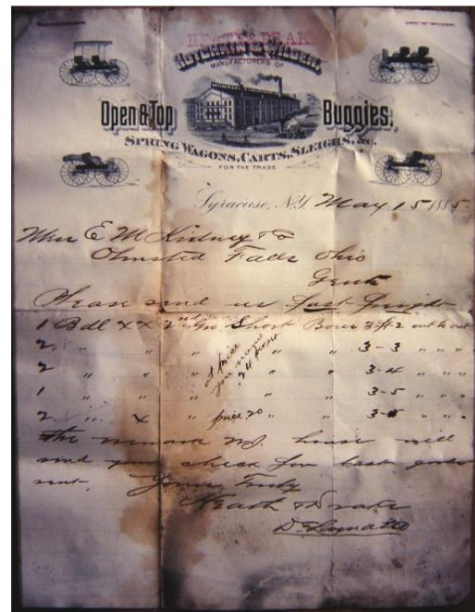 HEATH & DRAKE
HOTCHKIN & WILBER,
MANUFACTURERS OF
Open & Top Buggies,
SPRING WAGONS, CARTS, SLEIGHS, &c.
FOR THE TRADE
Syracuse, N.Y. May 15 1885
Mess E M Kidney & Co
Olmsted Falls Ohio
Gents
Please send us fast freight
1 Bdl XX 2 Short Bows 3 # 2
2 " " " " " 3-3 " " "
2 " " " " " 3-4 " " "
1 " " " " " 3-5 " " "
2 " X " price 20 " " 3- " " "
at price
The Newark NJ house will
send you check for last goods
sent. Yours Truly
Heath & Drake